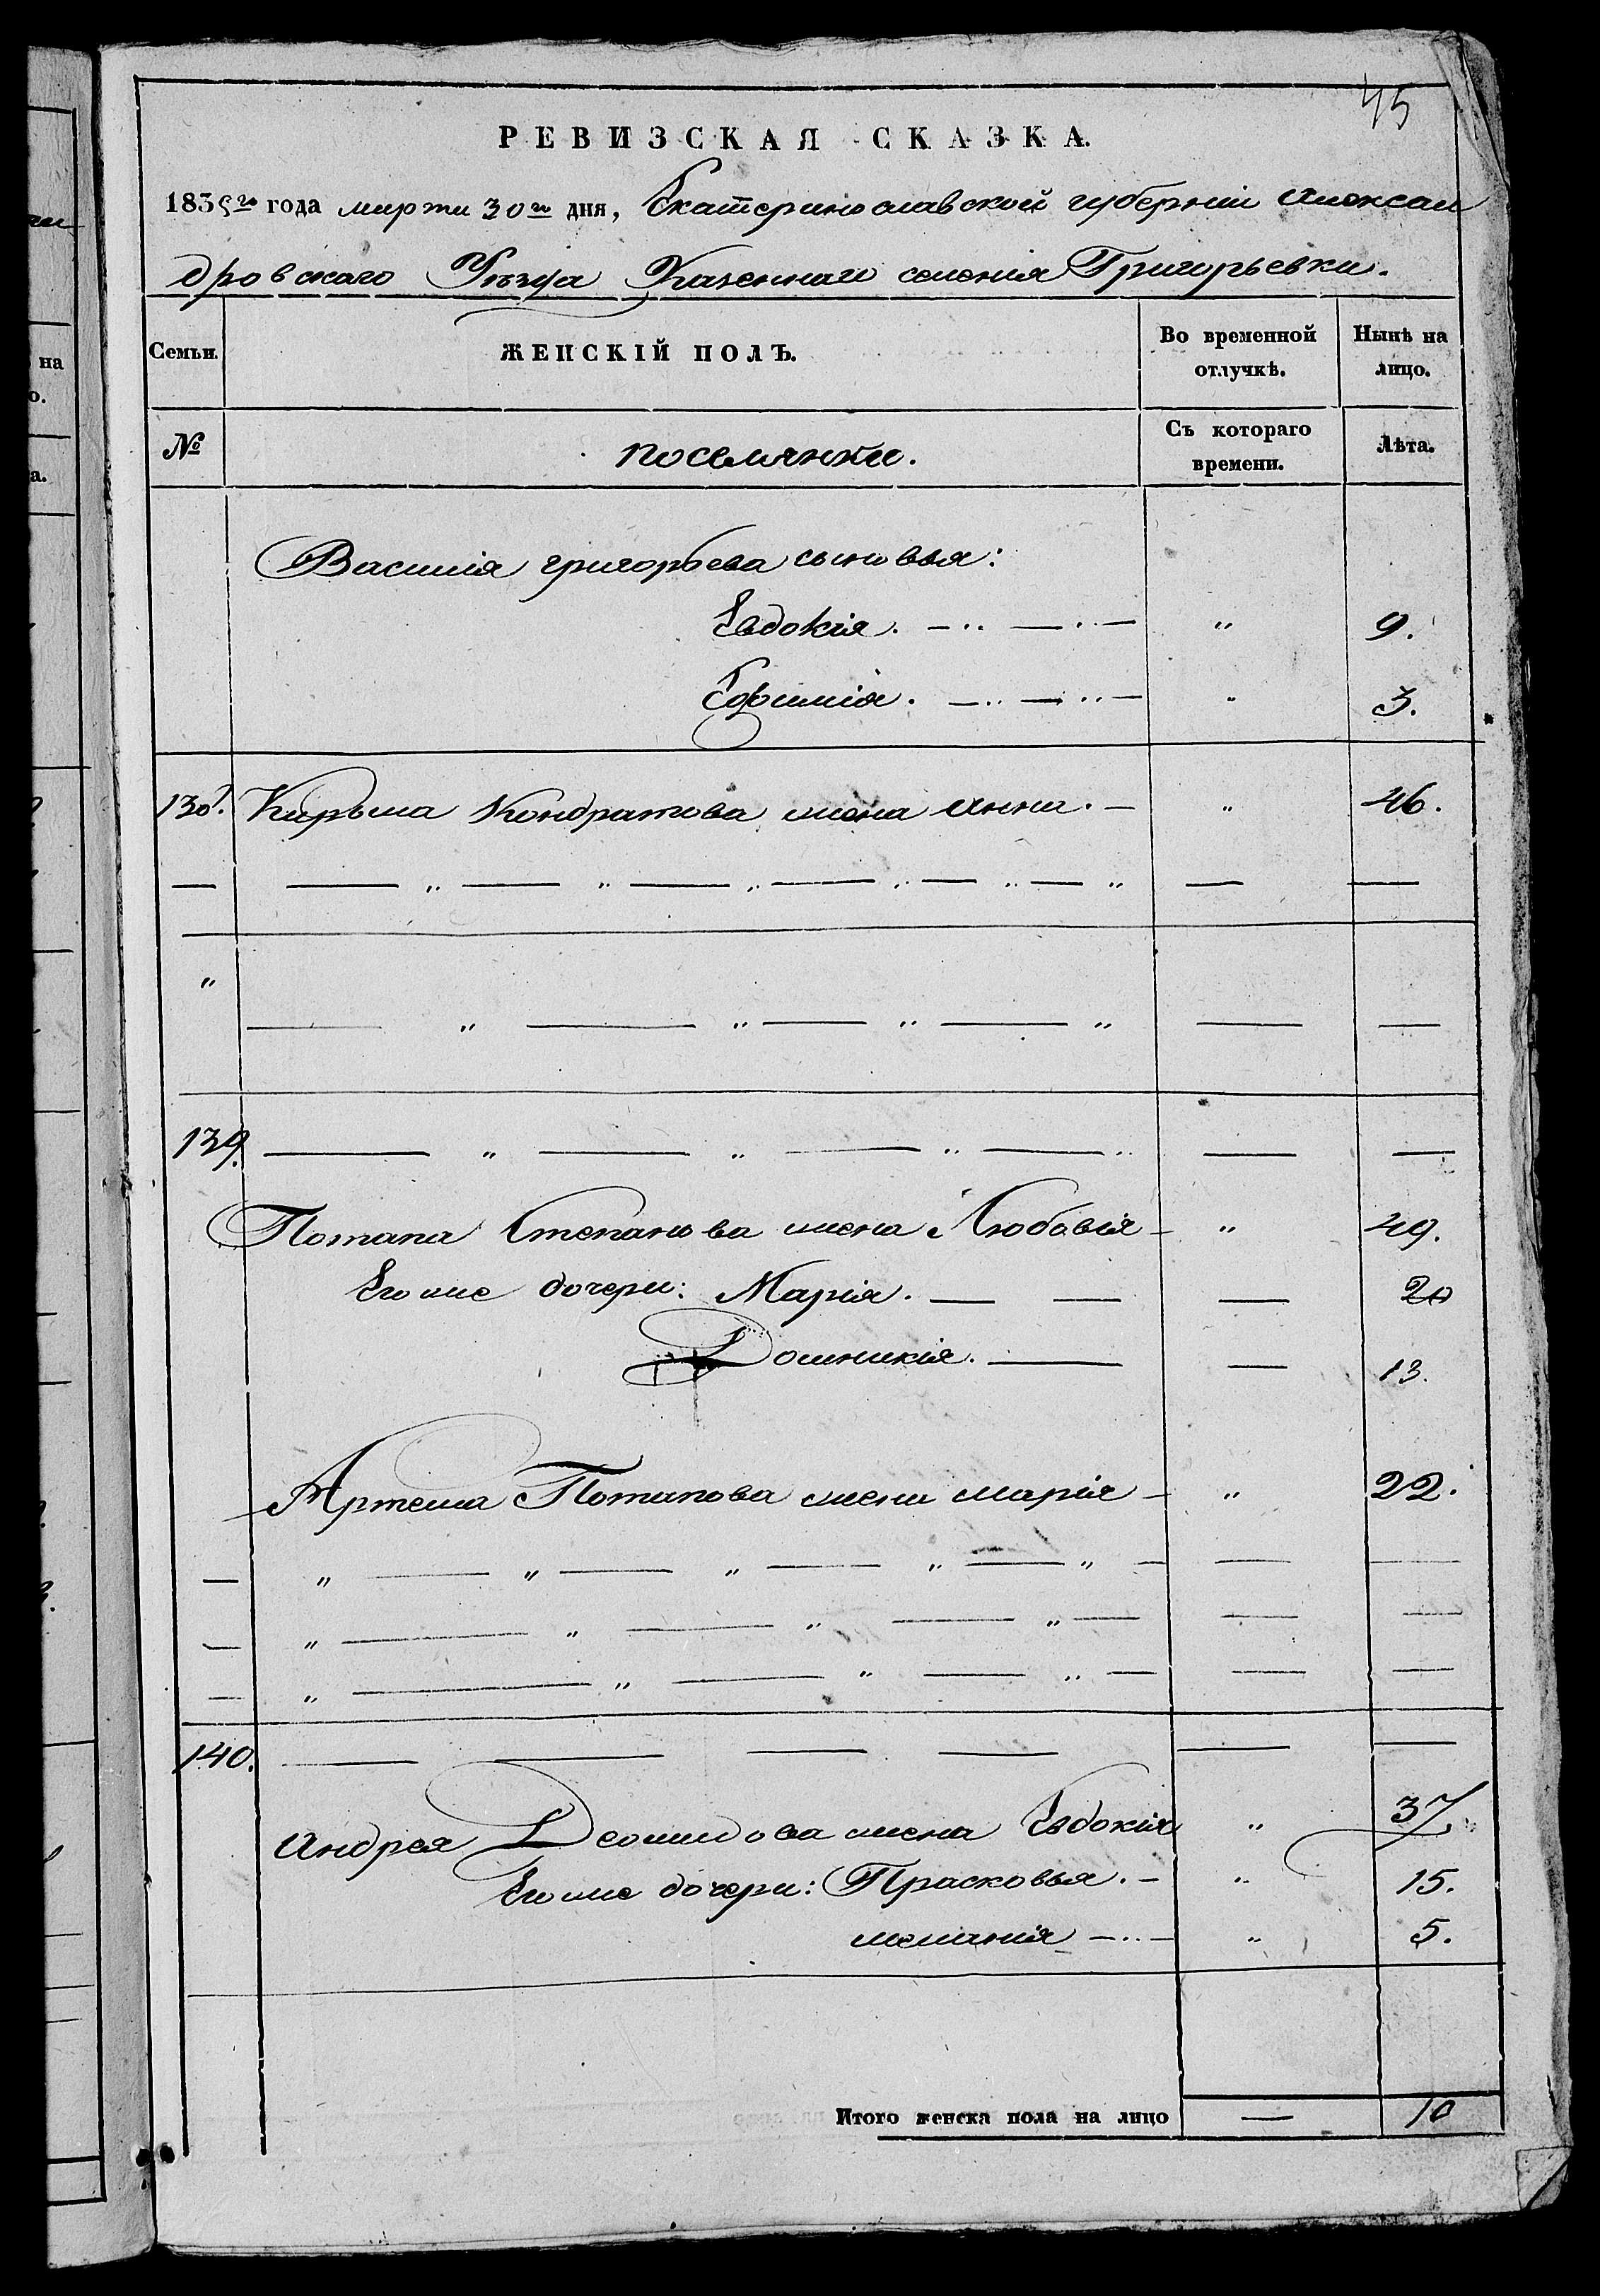 45
РЕВИЗСКАЯ СКАЗКА.
1835го года марта 30го дня, Екатеринославской губерніи Алексан
дровскаго Уѣзда Казеннаго селенія Григорьевки.
Семьи. ЖЕНСКІЙ ПОЛЪ. Во временной отлучкѣ. Нынѣ на лицо.
№ поселянки. Съ котораго времени. Лѣта.
Василія григорьева сыновья:
Евдокія. — " — " — " 9.
Ефимія. — " — " — " 3.
138. Кирыла Кондратова жена анна. — " 46.
— — " — " — " — " — " — " — —
"
— " — " — " — " — —
139. — " — " — " — " — —
Потапа Степанова жена Любовія — " 49.
Его же дочери: Марія. — — — 20
Домникія. — — 13.
Артема Потапова жена марія — " 22.
— " — " — " — " — " — — —
— " — " — " — " — — —
— " — " — " — " — — —
140. — — — — — —
Андрея Деомидова жена Евдокія " 37.
Его же дочери: Прасковья. — " 15.
меланія — " — " 5.
Итого женска пола на лицо — 10
на
о.
а.